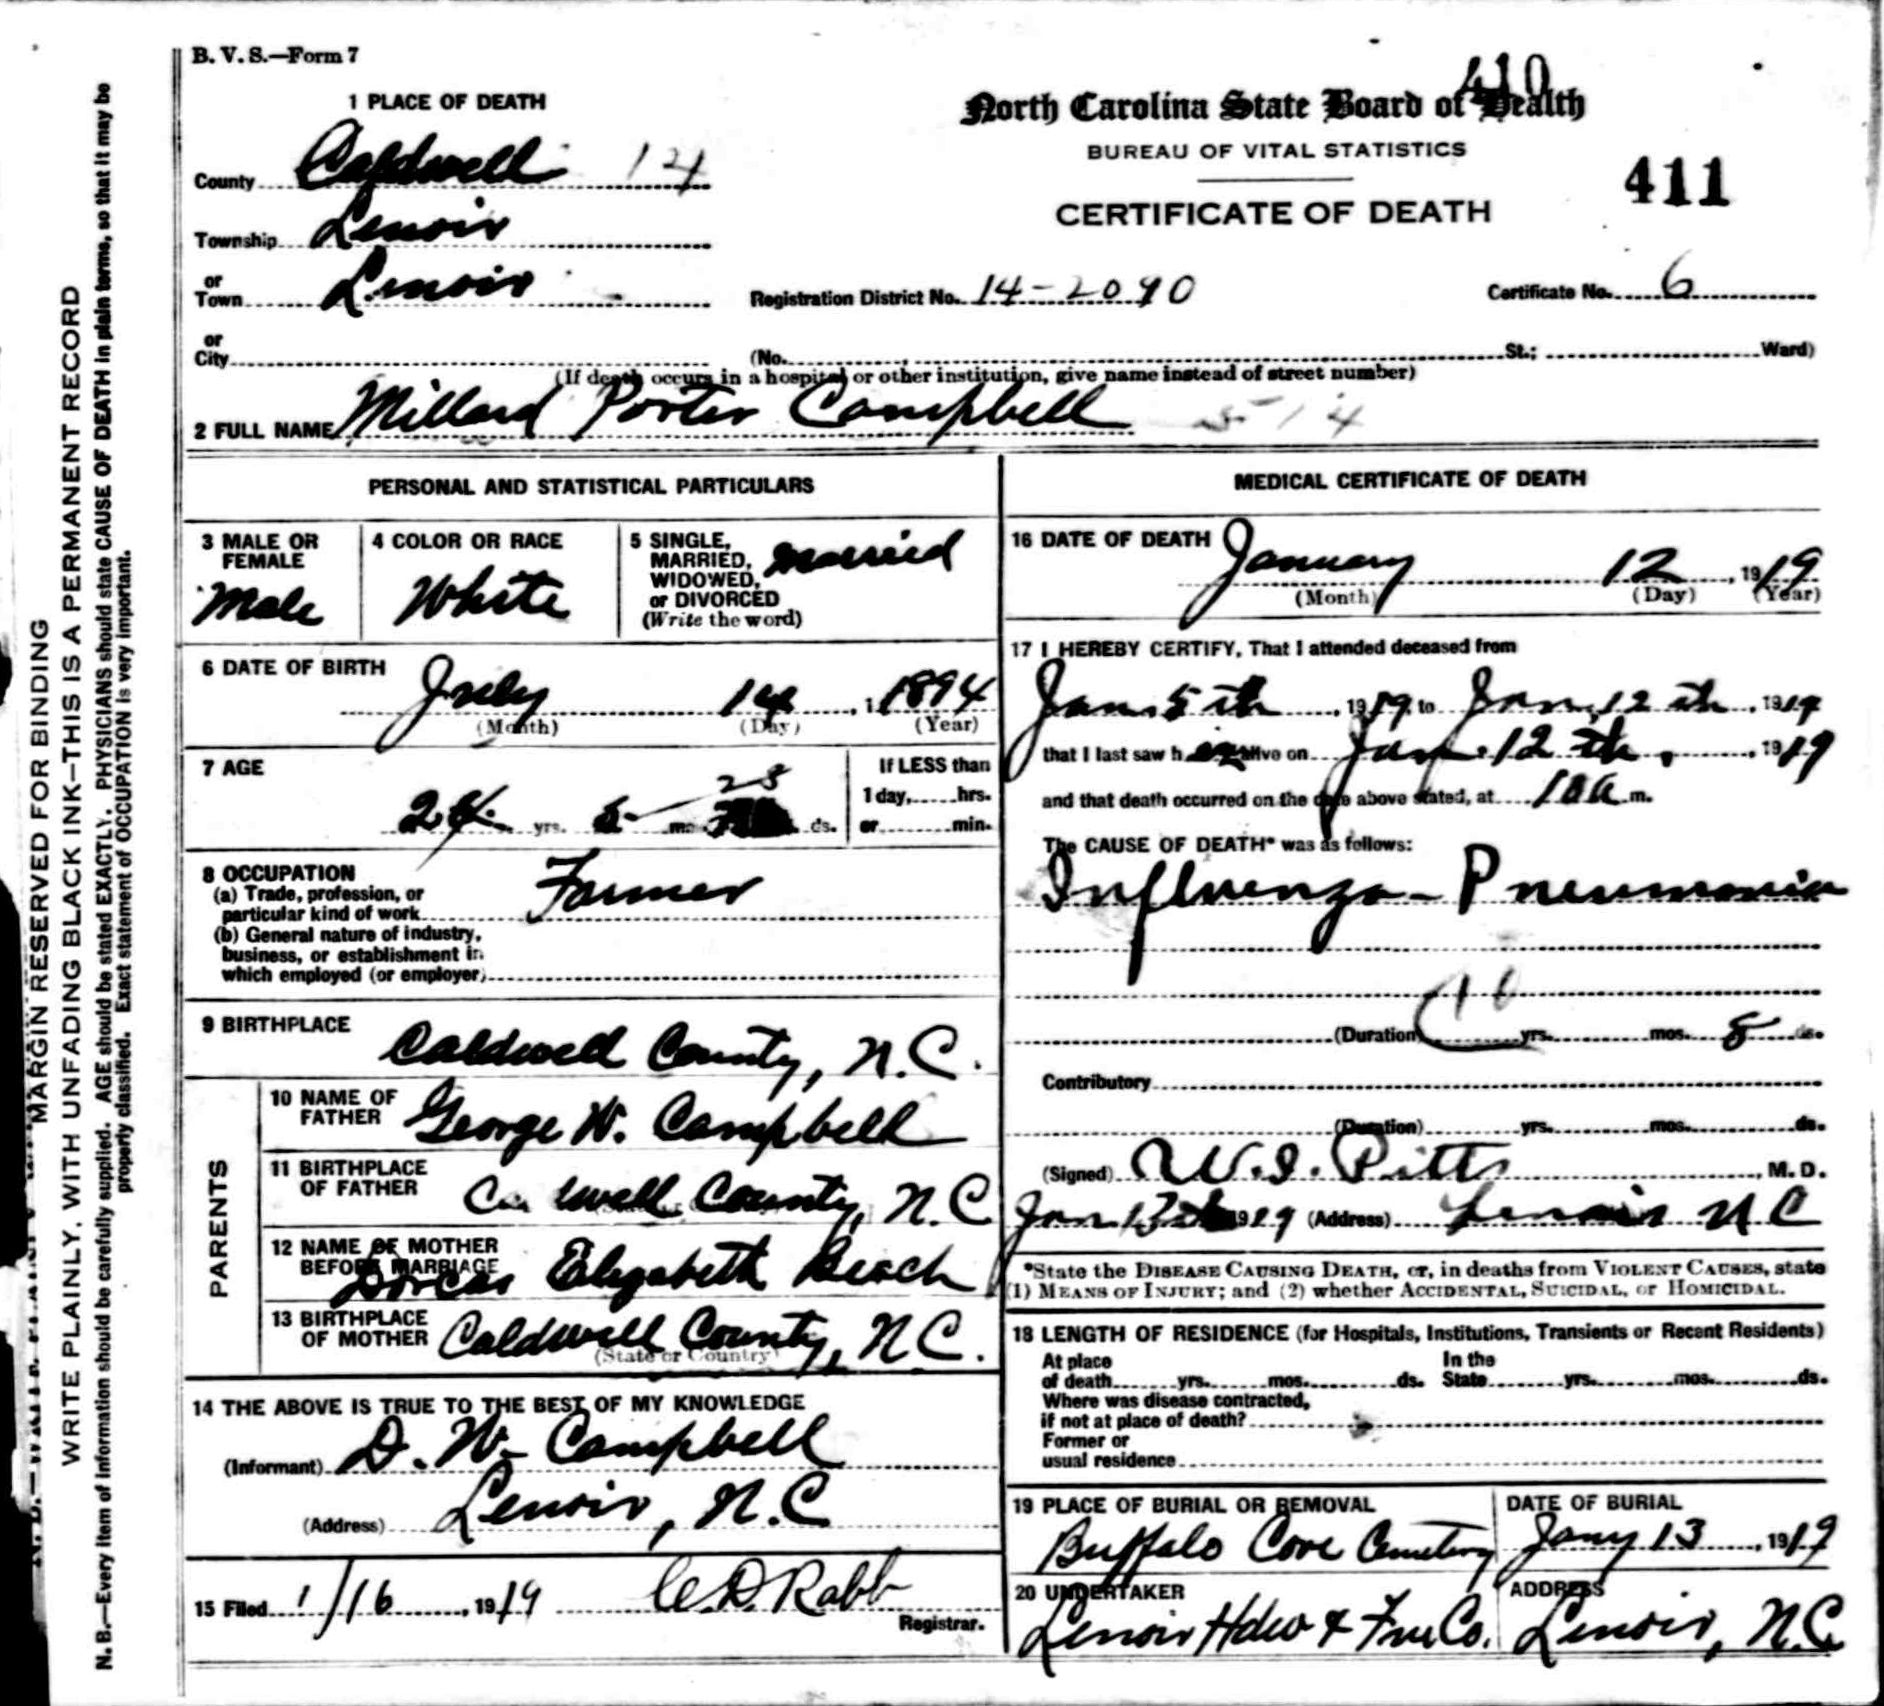 B. V. S.—Form 7
1 PLACE OF DEATH
410
North Carolina State Board of Health
BUREAU OF VITAL STATISTICS
411
CERTIFICATE OF DEATH
County Caldwell 14
Township Lenoir
or
Town Lenoir
Registration District No. 14-2090
Certificate No. 6
or
City (No. St.; Ward)
(If death occurs in a hospital or other institution, give name instead of street number)
2 FULL NAME Millard Porter Campbell 514
PERSONAL AND STATISTICAL PARTICULARS
3 MALE OR FEMALE
Male
4 COLOR OR RACE
White
5 SINGLE, MARRIED, WIDOWED, or DIVORCED (Write the word)
Married
6 DATE OF BIRTH
July 14, 1894
(Month) (Day) (Year)
7 AGE
24 yrs. 5 mos. 28 ds.
If LESS than
1 day, hrs.
or min.
8 OCCUPATION
(a) Trade, profession, or
particular kind of work Farmer
(b) General nature of industry,
business, or establishment in
which employed (or employer)
9 BIRTHPLACE
Caldwell County, N.C.
PARENTS
10 NAME OF FATHER George W. Campbell
11 BIRTHPLACE OF FATHER Caldwell County, N.C
12 NAME OF MOTHER BEFORE MARRIAGE
Dorcas Elizabeth Beach
13 BIRTHPLACE OF MOTHER Caldwell County, N.C.
(State or Country)
14 THE ABOVE IS TRUE TO THE BEST OF MY KNOWLEDGE
(Informant) D. W. Campbell
(Address) Lenoir, N.C
15 Filed 1/16, 1919 C.D. Rabb
Registrar.
MEDICAL CERTIFICATE OF DEATH
16 DATE OF DEATH
January 12, 1919
(Month) (Day) (Year)
17 I HEREBY CERTIFY, That I attended deceased from
Jan. 5th, 1919, to Jan. 12th, 1919
that I last saw him alive on Jan. 12th, 1919
and that death occurred on the date above stated, at 10a m.
The CAUSE OF DEATH* was as follows:
Influenza-Pneumonia
10
(Duration) yrs. mos. 8 ds.
Contributory
(Duration) yrs. mos. ds.
(Signed) W.I. Pitts, M. D.
Jan 13th 1919 (Address) Lenoir N C
*State the DISEASE CAUSING DEATH, or, in deaths from VIOLENT CAUSES, state
(1) MEANS OF INJURY; and (2) whether ACCIDENTAL, SUICIDAL, or HOMICIDAL.
18 LENGTH OF RESIDENCE (for Hospitals, Institutions, Transients or Recent Residents)
At place In the
of death yrs. mos. ds. State yrs. mos. ds.
Where was disease contracted,
if not at place of death?
Former or
usual residence
19 PLACE OF BURIAL OR REMOVAL
Buffalo Cove Cemetery
DATE OF BURIAL
Jany 13, 1919
20 UNDERTAKER
Lenoir Hdw & Fur. Co.
ADDRESS
Lenoir, N.C.
MARGIN RESERVED FOR BINDING
WRITE PLAINLY, WITH UNFADING BLACK INK—THIS IS A PERMANENT RECORD
N. B.—Every item of information should be carefully supplied. AGE should be stated EXACTLY. PHYSICIANS should state CAUSE OF DEATH in plain terms, so that it may be
properly classified. Exact statement of OCCUPATION is very important.